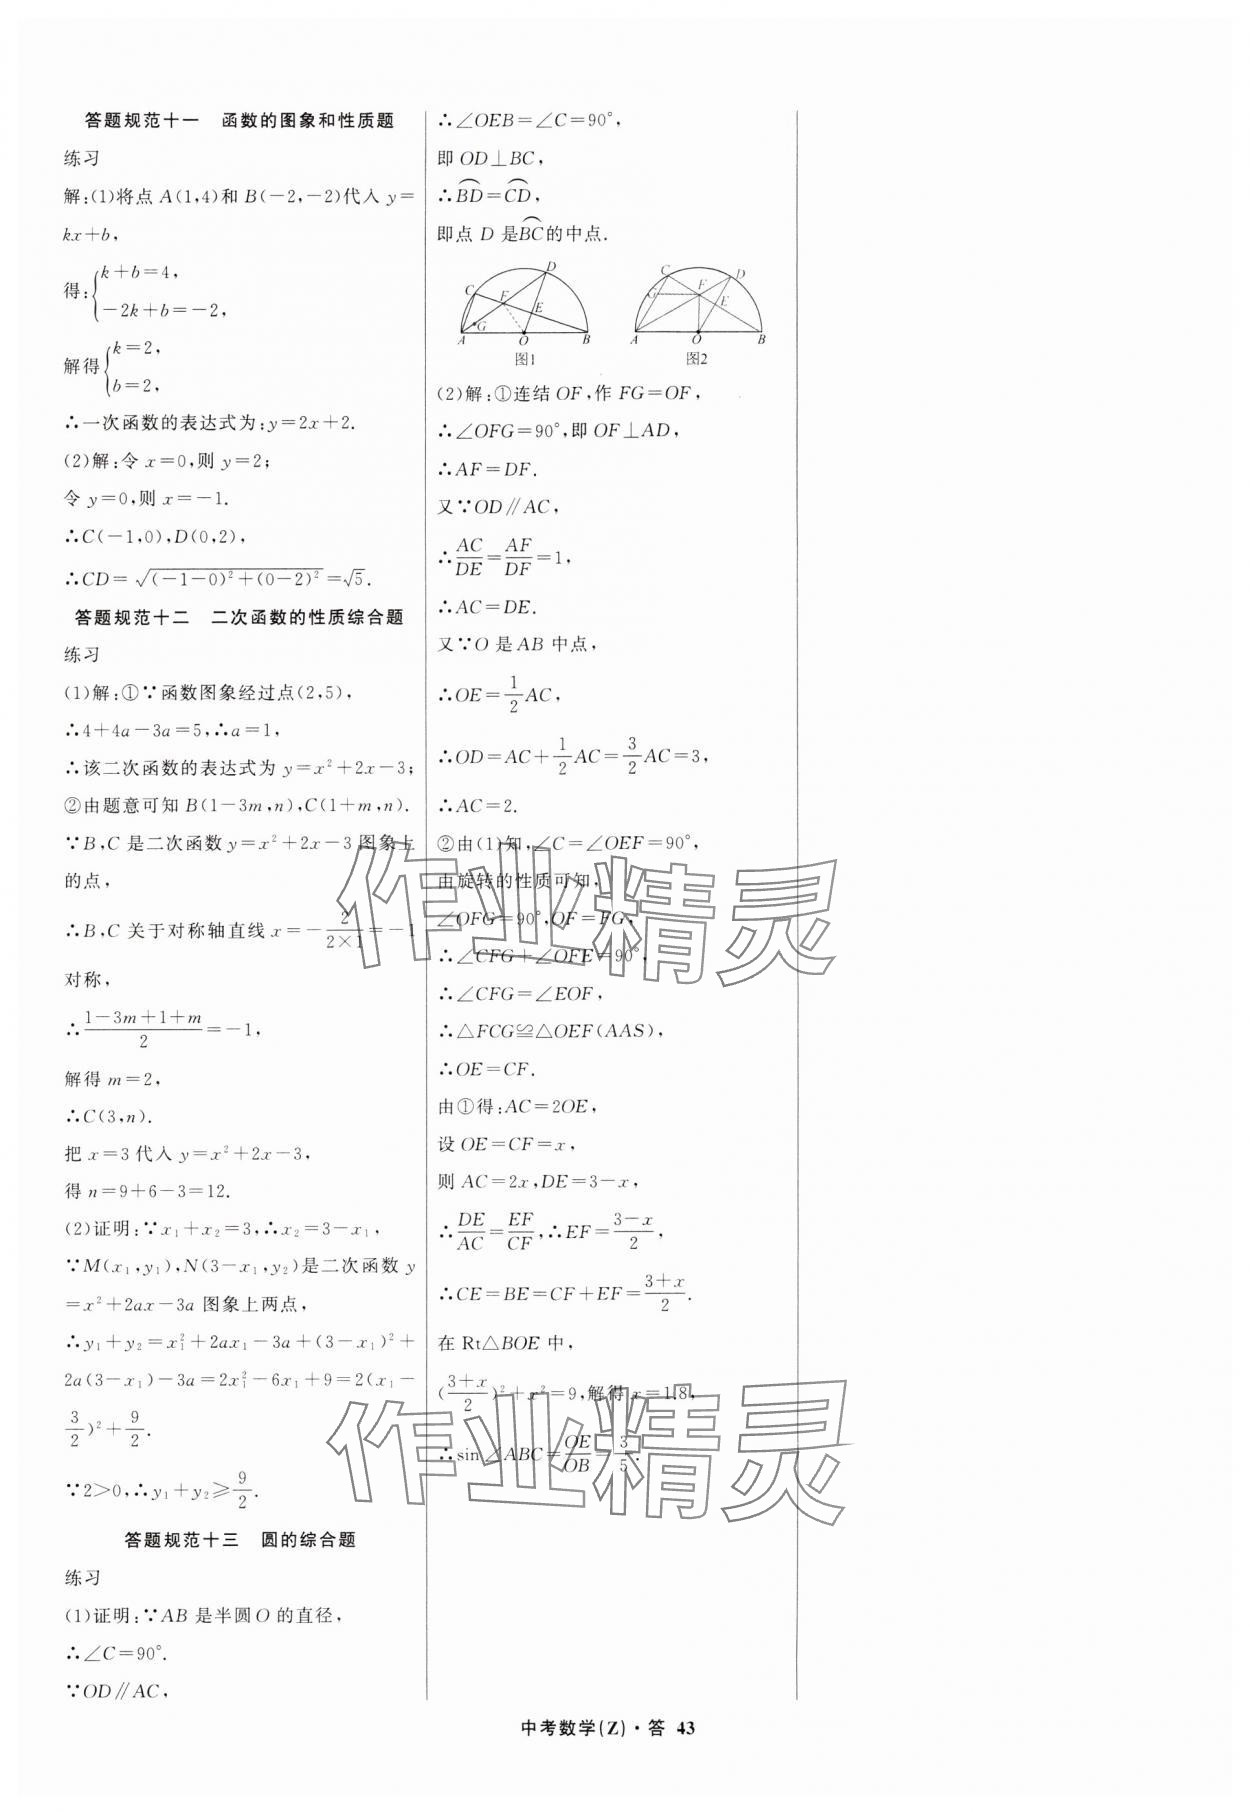 答题规范十一 函数的图象和性质题
练习
解:(1)将点 A(1,4)和 B(-2,-2)代入 y=
kx+b,
得:{k+b=4,
-2k+b=-2,
解得{k=2,
b=2,
∴一次函数的表达式为:y=2x+2.
(2)解:令 x=0,则 y=2;
令 y=0,则 x=-1.
∴C(-1,0),D(0,2),
∴CD=√((-1-0)²+(0-2)²)=√5.
答题规范十二 二次函数的性质综合题
练习
(1)解:①∵函数图象经过点(2,5),
∴4+4a-3a=5,∴a=1,
∴该二次函数的表达式为 y=x²+2x-3;
②由题意可知 B(1-3m,n),C(1+m,n).
∵B,C 是二次函数 y=x²+2x-3 图象上
的点,
∴B,C 关于对称轴直线 x=-2/(2×1)=-1
对称,
∴(1-3m+1+m)/2=-1,
解得 m=2,
∴C(3,n).
把 x=3 代入 y=x²+2x-3,
得 n=9+6-3=12.
(2)证明:∵x₁+x₂=3,∴x₂=3-x₁,
∵M(x₁,y₁),N(3-x₁,y₂)是二次函数 y
=x²+2ax-3a 图象上两点,
∴y₁+y₂=x₁²+2ax₁-3a+(3-x₁)²+
2a(3-x₁)-3a=2x₁²-6x₁+9=2(x₁-
3/2)²+9/2.
∵2>0,∴y₁+y₂≥9/2.
答题规范十三 圆的综合题
练习
(1)证明:∵AB 是半圆 O 的直径,
∴∠C=90°.
∵OD∥AC,
∴∠OEB=∠C=90°,
即 OD⊥BC,
∴⌒BD=⌒CD,
即点 D 是⌒BC的中点.
C D F E G A O B
图1
C D F G E A O B
图2
(2)解:①连结 OF,作 FG=OF,
∴∠OFG=90°,即 OF⊥AD,
∴AF=DF.
又∵OD∥AC,
∴AC/DE=AF/DF=1,
∴AC=DE.
又∵O 是 AB 中点,
∴OE=1/2AC,
∴OD=AC+1/2AC=3/2AC=3,
∴AC=2.
②由(1)知,∠C=∠OEF=90°,
由旋转的性质可知,
∠OFG=90°,OF=FG,
∴∠CFG+∠OFE=90°,
∴∠CFG=∠EOF,
∴△FCG≌△OEF(AAS),
∴OE=CF.
由①得:AC=2OE,
设 OE=CF=x,
则 AC=2x,DE=3-x,
∴DE/AC=EF/CF,∴EF=(3-x)/2,
∴CE=BE=CF+EF=(3+x)/2.
在 Rt△BOE 中,
((3+x)/2)²+x²=9,解得 x=1.8,
∴sin∠ABC=OE/OB=3/5.
作业精灵
作业精灵
中考数学(Z)·答 43